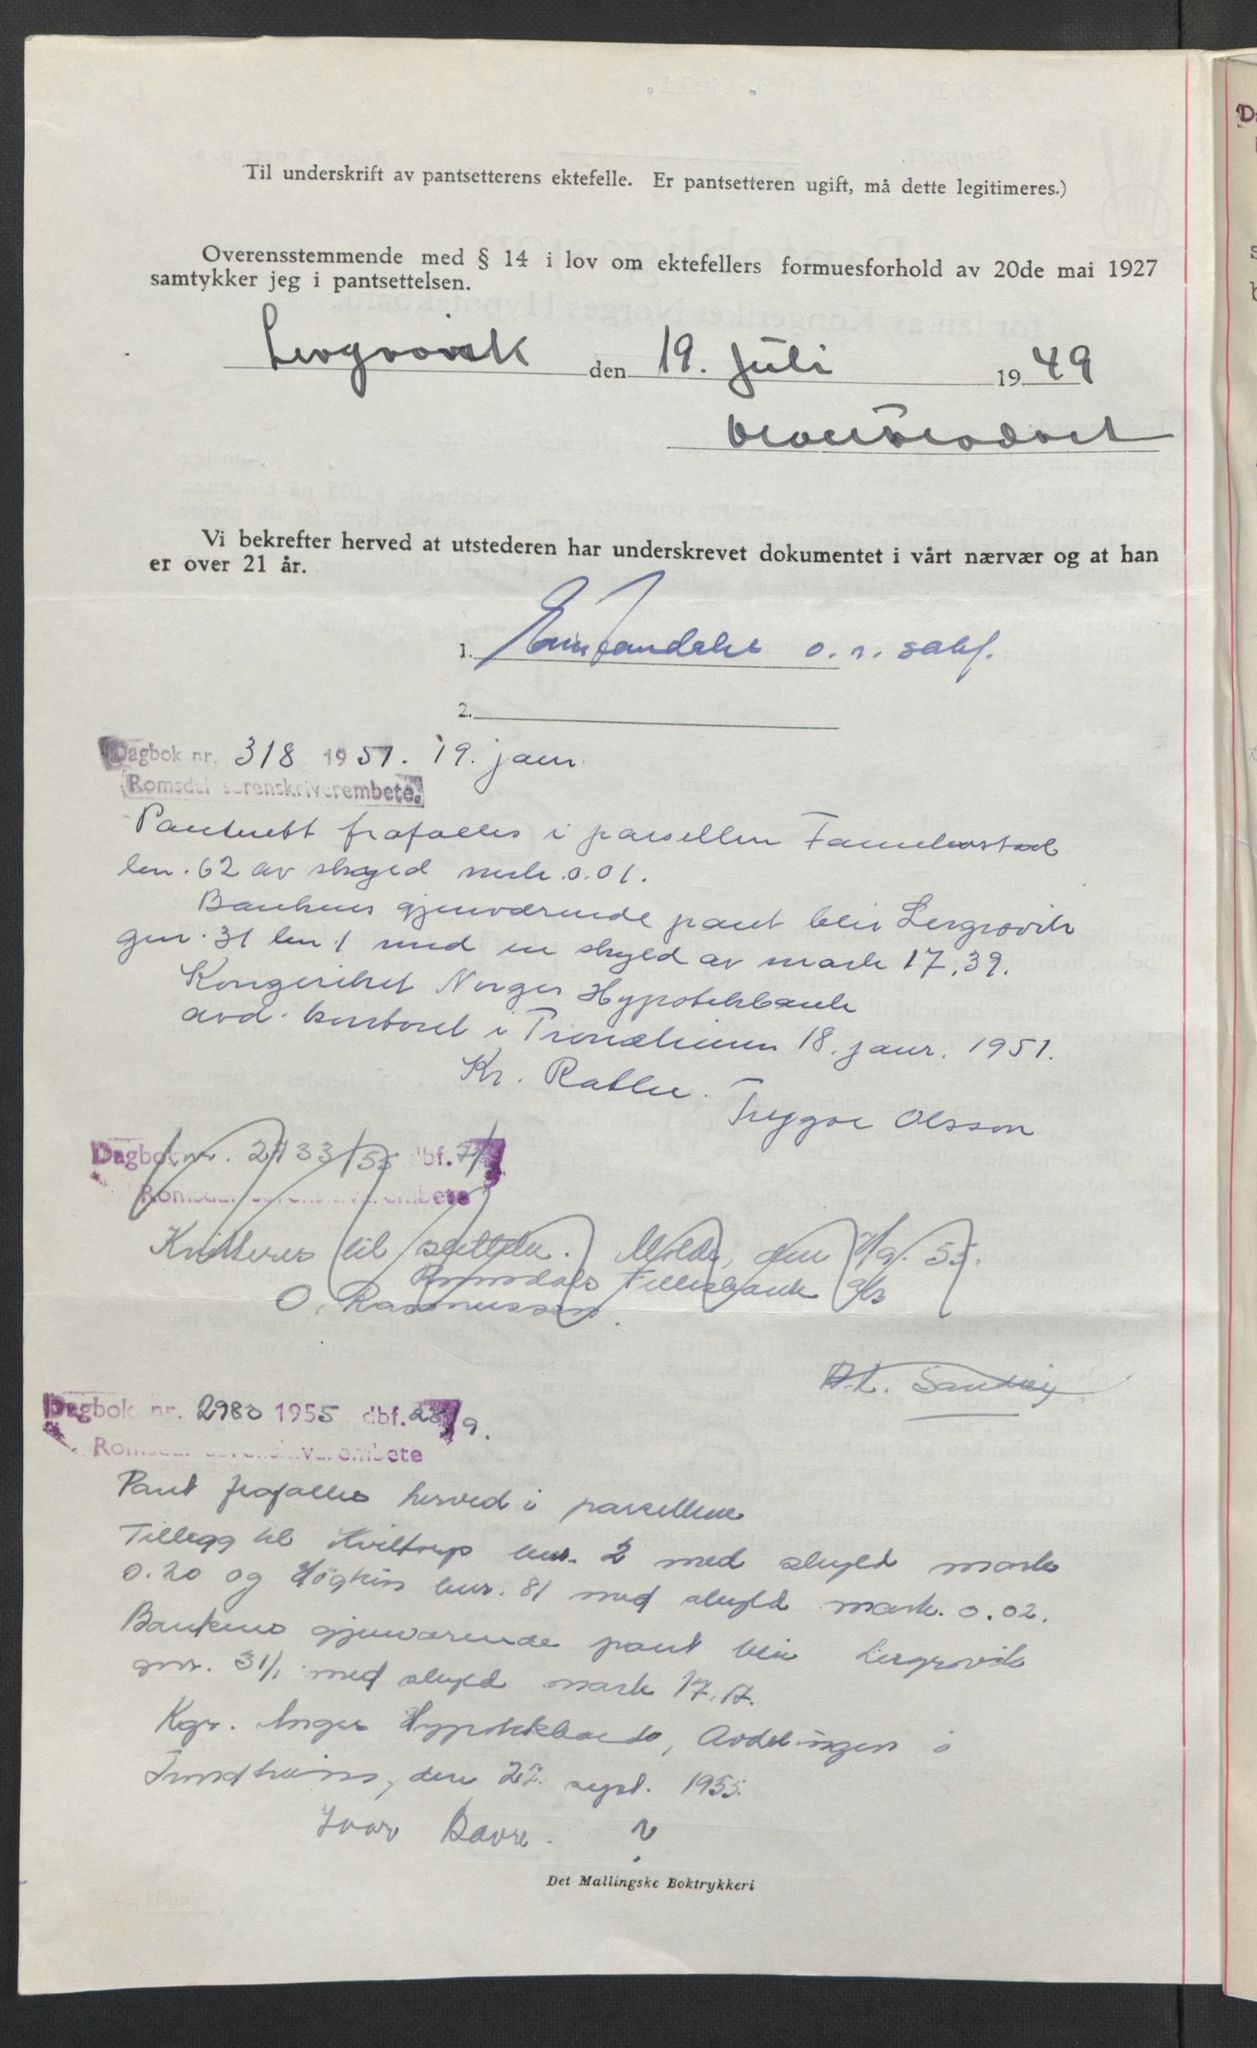 Til underskrift av pantsetterens ektefelle. Er pantsetteren ugift, må dette legitimeres.)
Overensstemmende med § 14 i lov om ektefellers formuesforhold av 20de mai 1927
samtykker jeg i pantsettelsen.
Lergrovik den 19. juli 1949
Vi bekrefter herved at utstederen har underskrevet dokumentet i vårt nærvær og at han
er over 21 år.
1. o.r. sakf.
2.
Dagbok nr. 318 1951. 19. jan.
Romsdal sorenskriverembete.
Pantrett frafalles i parsellen
bnr. 62 av skyld mrk. 0.01.
Bankens gjenværende pant blir Lergrovik
gnr. 31 bnr 1 med en skyld av mark 17,39.
Kongeriket Norges Hypotekbank
avd. kontoret i Trondheim 18. janr. 1951.
Kr. Tryggve Olsson
Dagbok nr. 2733/55 dbf. 7/9
Romsdal sorenskriverembete
Kvitteres til slettelse. Molde, den 7/9. 55.
Romsdals Fellesbank A/S
O. Rasmussen.
Sandvig
Dagbok nr. 2980 1955 dbf. 28/9.
Romsdal sorenskriverembete
Pant frafalles herved i parsellene
Tillegg til Hviltorp bnr. 2 med skyld mark
0.20 og bnr. 81 med skyld mark. 0.02.
Bankens gjenværende pant blir Lergrovik
gnr. 31/1 med skyld mark 17.17.
Kgr. Norges Hypotekbank, Avdelingen i
Trondheim, den 27. sept. 1955.
Ivar ?
Det Mallingske Boktrykkeri